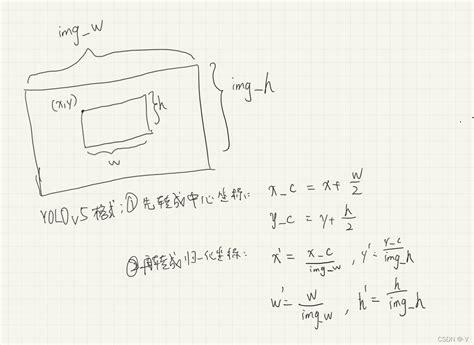 img_w
img_h
(x,y)
h
w
YOLOv5格式:①先转成中心坐标: x_c = x + w/2
y_c = y + h/2
②再转成归一化坐标: x' = x_c/img_w , y' = y_c/img_h
w' = w/img_w , h' = h/img_h
CSDN @-V